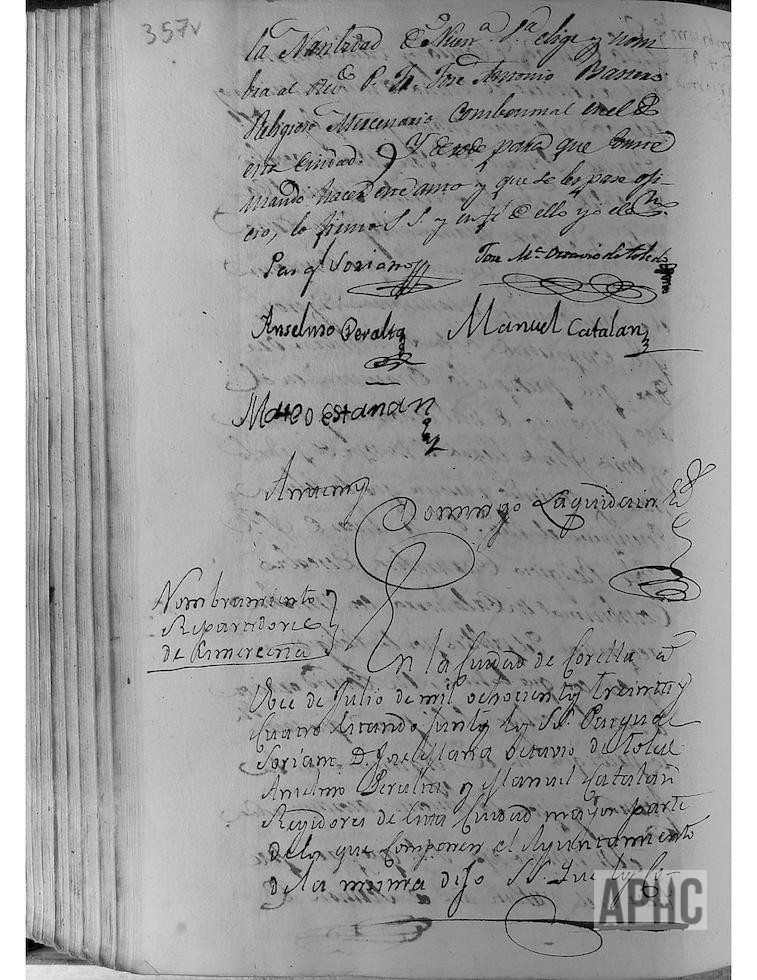 357v
la Navidad de Nuen.ª S.ª elige y nom
bra al Rev.do P. Fr. Jose Antonio Barrera
Religioso Mercenario Combentual en el de
esta Ciudad. Y de todo para que conste
mando hacer este auto y que se les pase ofi-
cio, lo firmo S.S. y en fe de ello yo el
Pasq.l Soriano
Jose M.ª Octavio de toledo
Anselmo Peralta
Manuel Catalan
Mateo
Antemi
Domingo Laquidain
Nombramiento
Repartidores
de Rimereria
En la Ciudad de Corella a
Once de Julio de mil ochocientos treinta y
Cuatro Estando juntos los SS. Pasqual
Soriano D. Jose Maria Octavio de toledo
Anselmo Peralta y Manuel Catalan
Regidores de esta Ciudad mayor parte
de los que componen el Ayuntamiento
de la misma dijo SS. Que
APHC